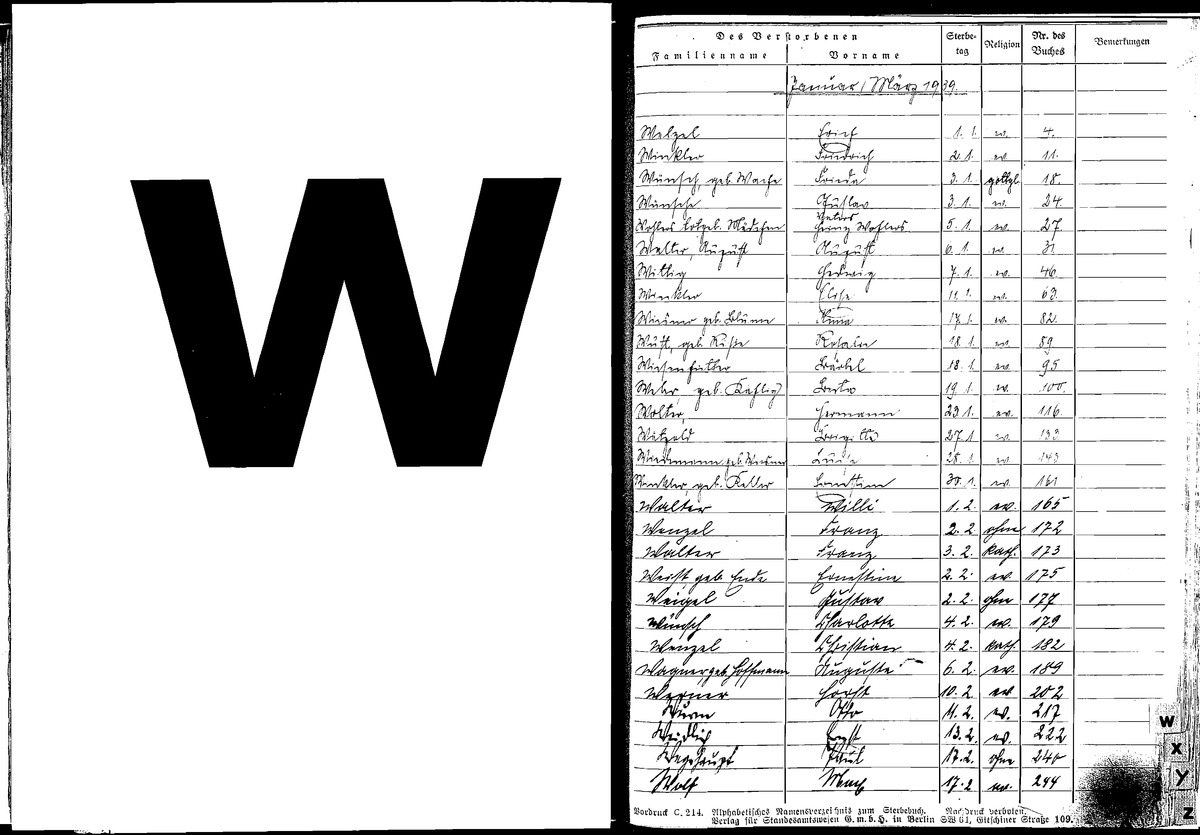 W
Des Verstorbenen Sterbe- Religion Nr. des Bemerkungen
Familienname Vorname tag Buches
Januar/März 1939.
Welzel Erich 1. 1. ev. 4.
Winkler Friedrich 2. 1. ev. 11.
Wünsch, geb. Wache Frieda 3. 1. gottgl. 18.
Wünsche Gustav 3. 1. ev. 24.
Wohlers totgeb. Mädchen Wohlers 5. 1. ev. 27
Walter, August August 6. 1. ev. 31
Wittig Hedwig 7. 1. ev. 46
Winkler Elise 11. 1. ev. 63.
Wiesner geb. Blume Anna 17. 1. ev. 82.
Wust, geb. 18. 1. ev. 89
Wiesenhütter Bärbel 18. 1. ev. 95
geb. 19. 1. ev. 100.
Wolter, Hermann 23. 1. ev. 116.
Brigitte 27. 1. ev. 133.
geb. Wiesner Luise 28. 1. ev. 143
Winkler, geb. Keller Ernestine 30. 1. ev. 161
Walter Willi 1. 2. ev. 165
Wenzel Franz 2. 2. ohne 172
Walter Franz 3. 2. kath. 173
Weist geb. Ende Ernestine 2. 2. ev. 175
Weigel Gustav 2. 2. ohne 177
Wünsch Charlotte 4. 2. ev. 179
Wenzel Christian 4. 2. kath. 182
Wagner, geb. Hoffmann Auguste 6. 2. ev. 189
Werner Horst 10. 2. ev. 202
Wurm Otto 11. 2. ev. 217
Weidlich Ernst 13. 2. ev. 222
Wegehaupt Paul 17. 2. ohne 240
Wolf Max 17. 2. ev. 244
W
X
Y
Z
Vordruck C. 214. Alphabetisches Namensverzeichnis zum Sterbebuch. Nachdruck verboten.
Verlag für Standesamtswesen G. m. b. H. in Berlin SW 61, Gitschiner Straße 109.